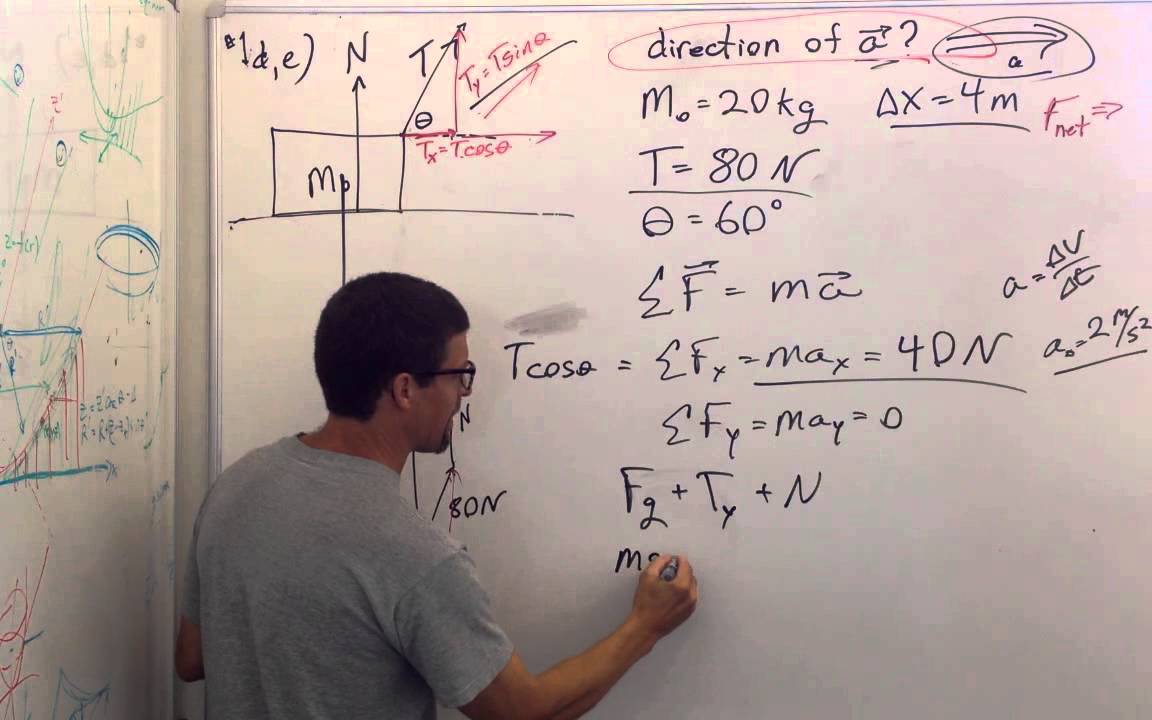 *1d,e)
N
T
θ
Ty=Tsinθ
Tx=Tcosθ
direction of a⃗ ?
a
M₀ = 20 kg
Δx = 4 m
Fnet ⇒
T = 80 N
θ = 60°
ΣF⃗ = ma⃗
a = ΔV/Δt
Tcosθ = ΣFx = max = 40 N
a₀ = 2 m/s²
ΣFy = may = 0
Fg + Ty + N
N
80N